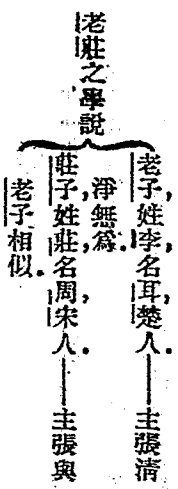 老莊之學說
老子，姓李，名耳，楚人。——主張清
淨無爲。
莊子姓莊，名周，宋人。——主張與
老子相似。